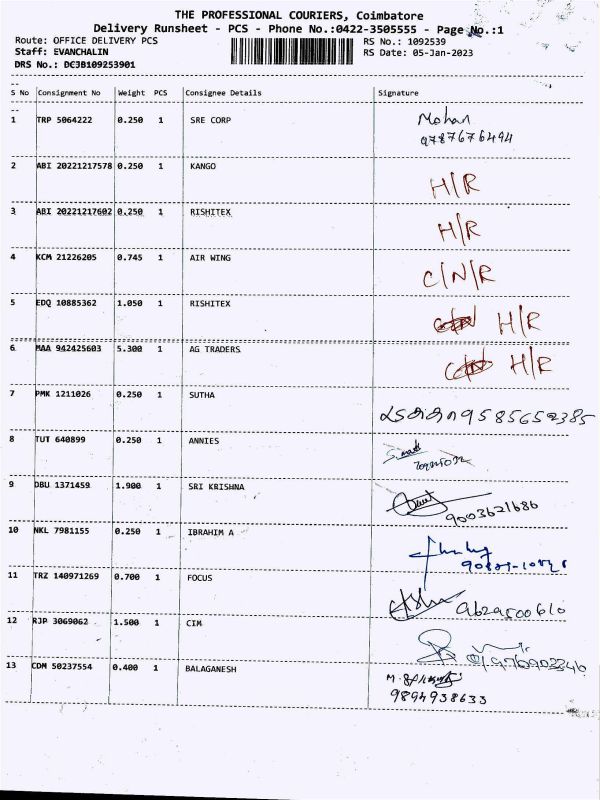 THE PROFESSIONAL COURIERS, Coimbatore
Delivery Runsheet - PCS - Phone No.:0422-3505555 - Page No.:1
Route: OFFICE DELIVERY PCS
RS No.: 1092539
Staff: EVANCHALIN
RS Date: 05-Jan-2023
DRS No.: DCJB109253901
S No Consignment No Weight PCS Consignee Details Signature
1 TRP 5064222 0.250 1 SRE CORP Mohan
9787676494
2 ABI 20221217578 0.250 1 KANGO H/R
3 ABI 20221217602 0.250 1 RISHITEX H/R
4 KCM 21226205 0.745 1 AIR WING C/N/R
5 EDQ 10885362 1.050 1 RISHITEX H/R
6 MAA 942425603 5.300 1 AG TRADERS H/R
7 PMK 1211026 0.250 1 SUTHA 9585652385
8 TUT 640899 0.250 1 ANNIES
9 DBU 1371459 1.900 1 SRI KRISHNA
9003621686
10 NKL 7981155 0.250 1 IBRAHIM A
11 TRZ 140971269 0.700 1 FOCUS
12 RJP 3069062 1.500 1 CIM
13 CDM 50237554 0.400 1 BALAGANESH
9894938633